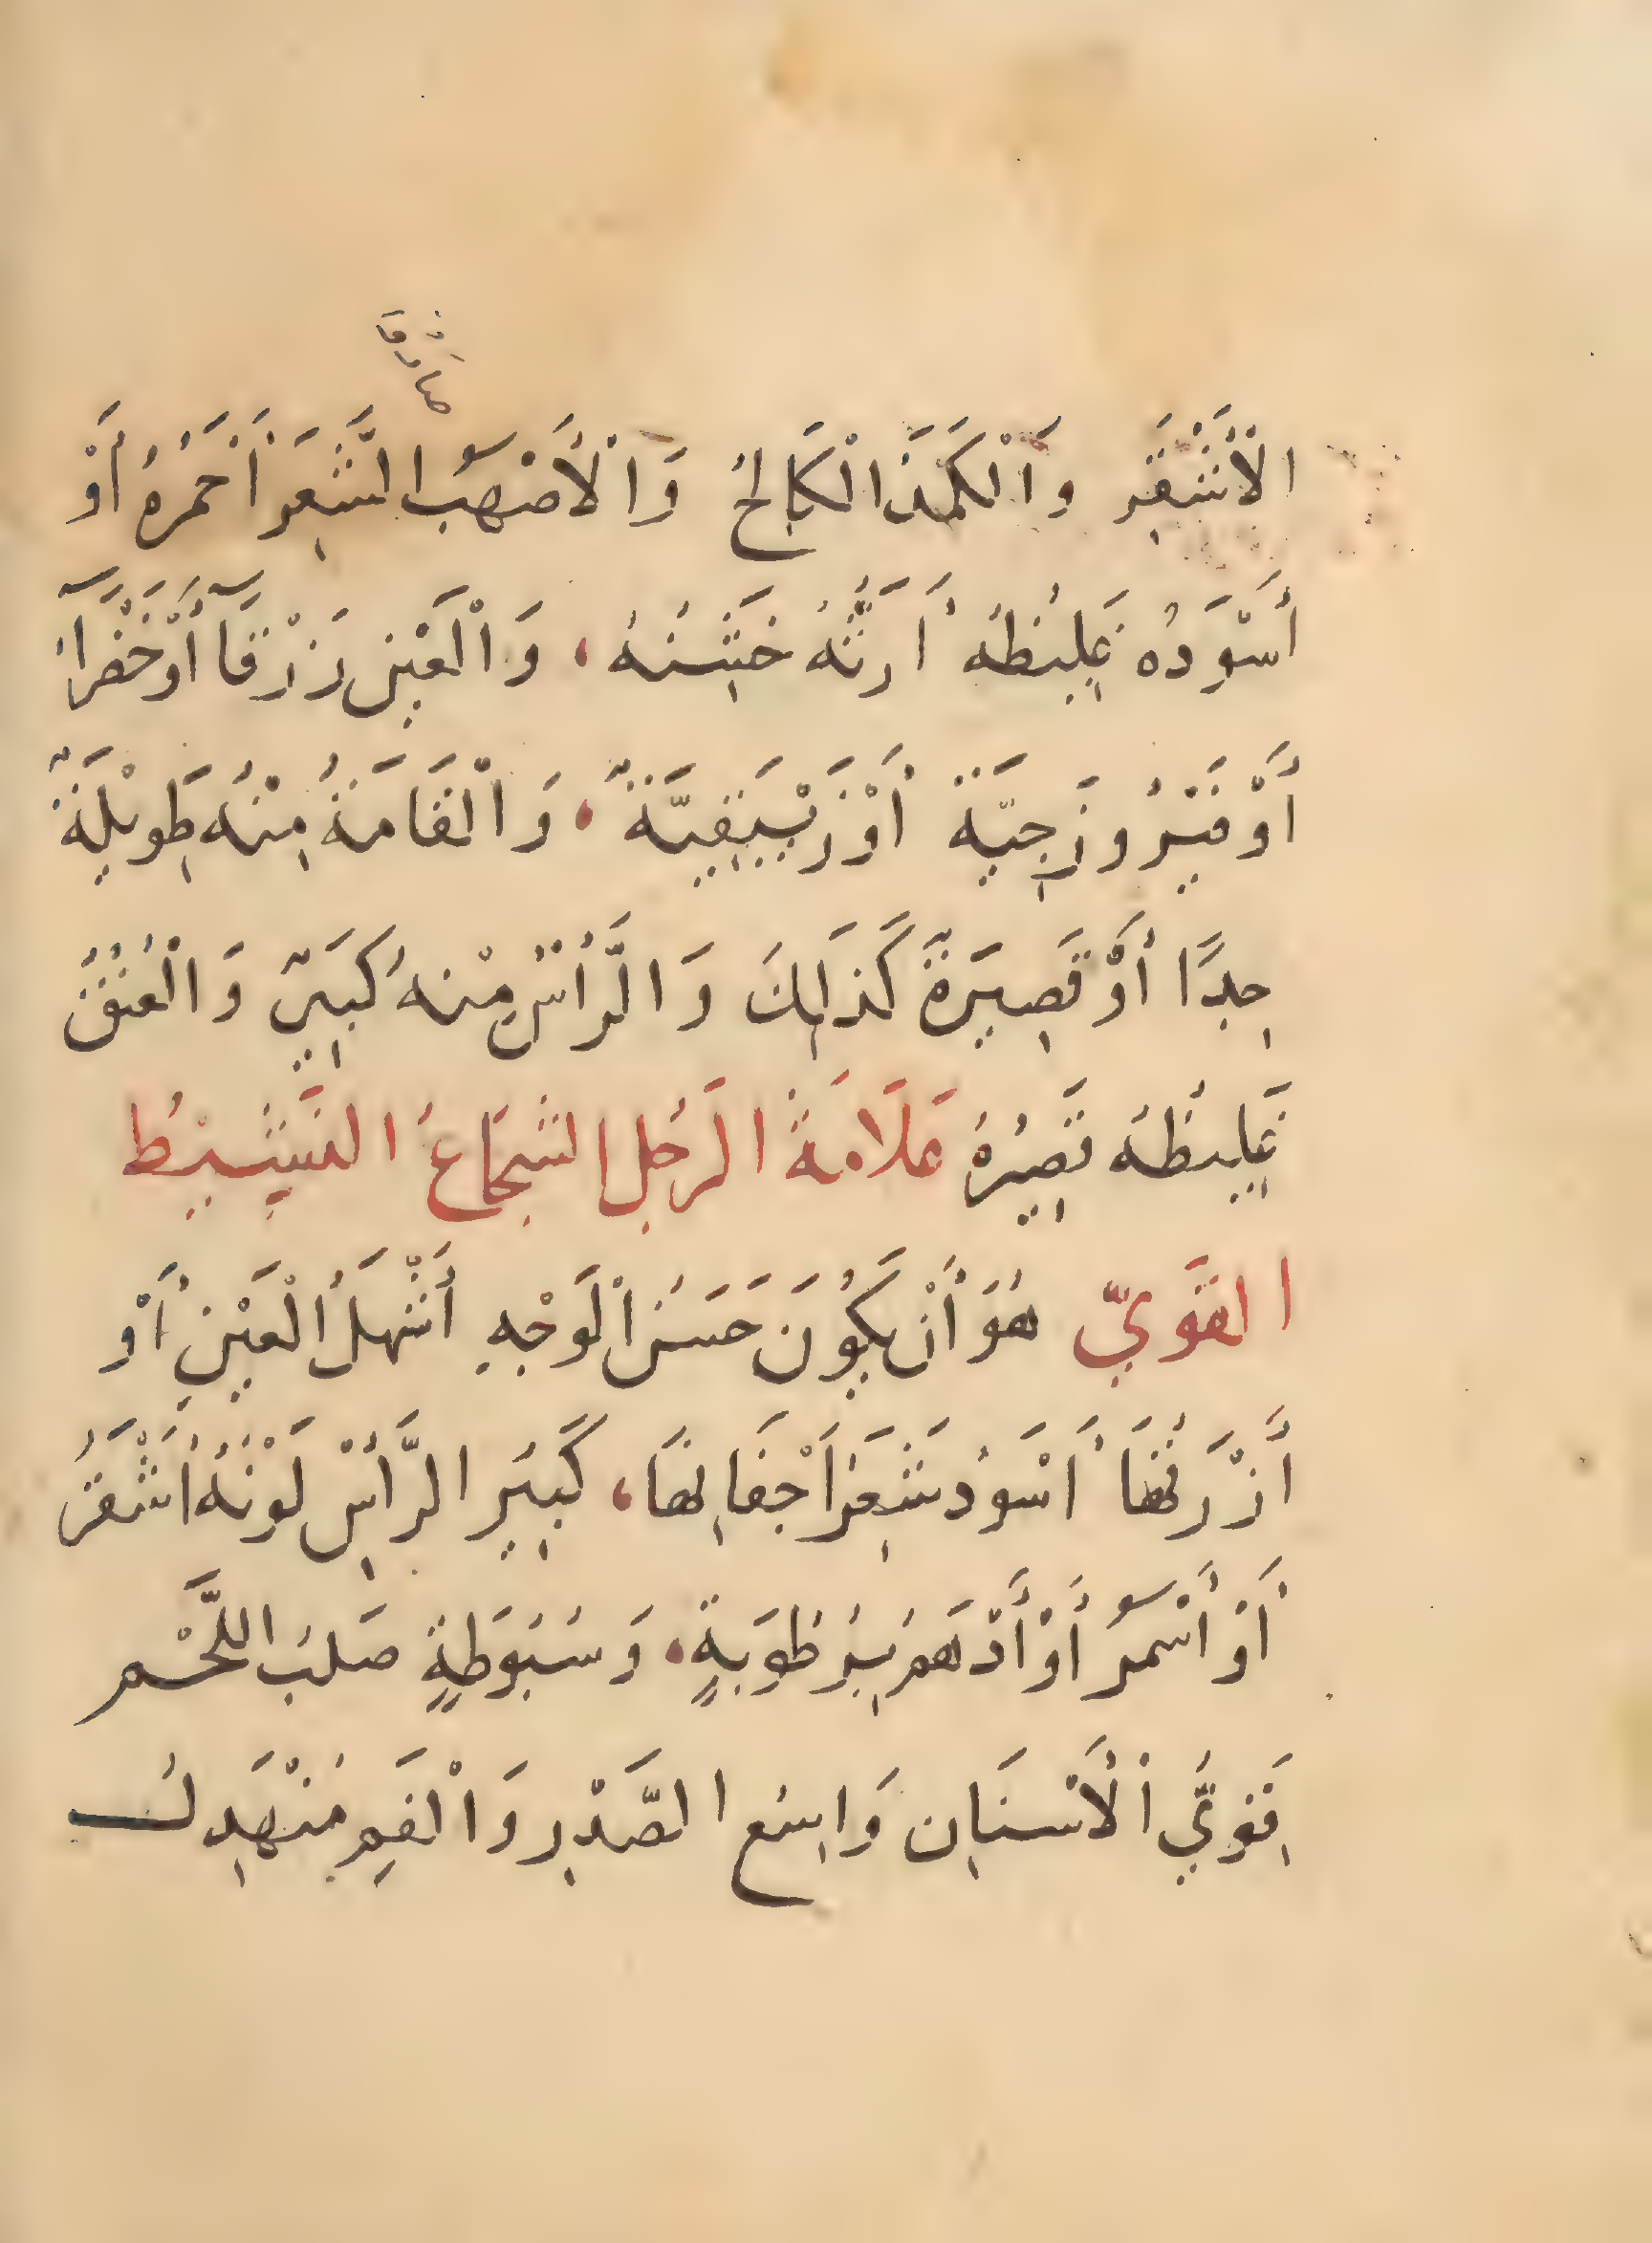 صارقا
الْأَشْقَرِ وَالْكَمَدَ الْكَالِحُ وَالْأَصْهَبُ الشَّعَرَ أَحْمَرُهُ أَوْ
أَسْوَدُه غَلِيظُه أَرَثُّهُ خَشِنُهُ، وَالْعَيْن زَرْقَآ أَوْ خَضْرَآءُ
أَوْ فَيْرُوزَجِيَّة أَوْ زَيْبَقِيَّةٌ، وَالْقَامَةُ مِنْهُ طَوِيْلَةٌ
جِدًا أَوْ قَصِيرَةٌ كَذَالِكَ وَالرَّأْسُ مِنْهُ كَبِيرٌ وَالْعُنُقُ
غَلِيظُهُ قَصِيْرُهُ عَلَامَةُ الرَجُلِ الشَجَاعُ النَشِيطُ
القَوِيّ هُوَ أَنْ يَكُونَ حَسَنُ الْوَجْهِ أَشْهَلُ الْعَيْنِ أَوْ
أَزْرَقُهَا أَسْوَدُ شَعَرِ أَجْفَانِهَا، كَبِيرَ الرَّأْسِ لَوْنُهُ أَشْقَرُ
أَوْ أَسْمَرُ أَوْ أَدْهَمُ بِرُطُوبَةٍ، وَسُبُوطَةٍ صَلبُ اللَّحْم
قَوِيُّ الْأَسْنَانِ وَاسِعُ الصَّدْرِ وَالْفَمِ مُنْهَدِلُ